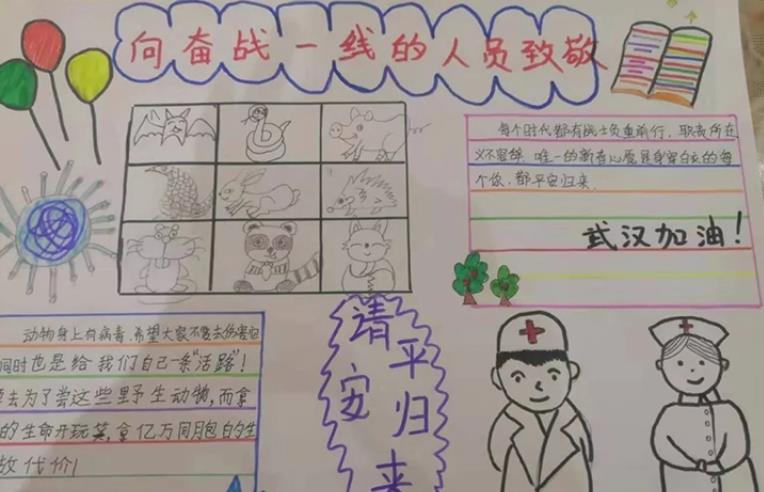 向奋战一线的人员致敬
每个时代都有战士负重前行，职责所在
义不容辞.唯一的新春心愿是身穿白衣的每
个你，都平安归来.
武汉加油！
动物身上有病毒.希望大家不要去伤害它
同时也是给我们自己一条“活路”！
去为了尝这些野生动物，而拿
的生命开玩笑，拿亿万同胞的生
故代价！
请平安归来